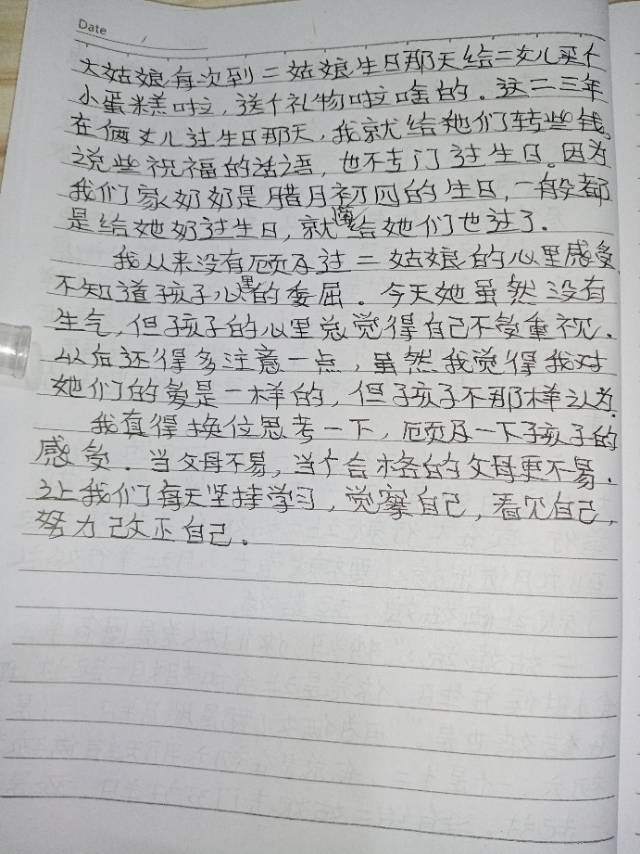 Date
大姑娘每次到二姑娘生日那天给二女儿买个
小蛋糕啦，送个礼物啦啥的。这二三年
在俩女儿过生日那天，我就给她们转些钱。
说些祝福的话语，也不专门过生日。因为
我们家奶奶是腊月初四的生日，一般都
是给她奶过生日，就 给她们也过了。
我从来没有顾及过二姑娘的心里感受
不知道孩子心里的委屈。今天她虽然没有
生气，但孩子的心里总觉得自己不受重视。
以后还得多注意一点，虽然我觉得我对
她们的爱是一样的，但孩子不那样认为。
我真得换位思考一下，顾及一下孩子的
感受。当父母不易，当个合格的父母更不易。
让我们每天坚持学习，觉察自己，看见自己，
努力改正自己。